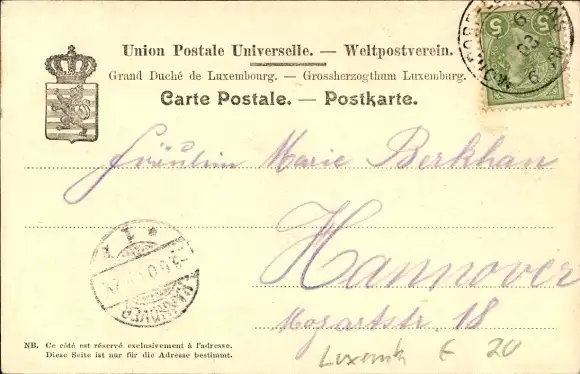 Union Postale Universelle. — Weltpostverein.
Grand Duché de Luxembourg. — Grossherzogthum Luxemburg.
Carte Postale. — Postkarte.
5 5
6
03
9
Fräulein Marie Berkhan
Hannover
Mozartstr. 18
HANNOVER
NB. Ce côté est réservé exclusivement à l'adresse.
Diese Seite ist nur für die Adresse bestimmt.
20